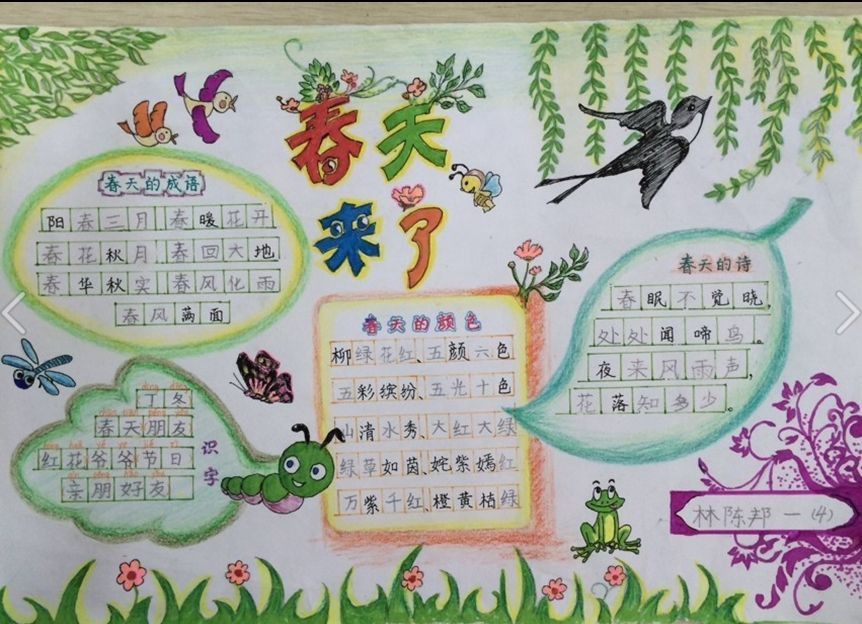 春天
来了
春天的成语
阳春三月 春暖花开
春花秋月 春回大地
春华秋实 春风化雨
春风满面
春天的颜色
柳绿花红、五颜六色
五彩缤纷、五光十色
山清水秀、大红大绿
绿草如茵、姹紫嫣红
万紫千红、橙黄枯绿
春天的诗
春眠不觉晓,
处处闻啼鸟。
夜来风雨声,
花落知多少。
识字
dīng dōng
丁冬
chūn tiān péng yǒu
春天朋友
hóng huā yé ye jié rì
红花爷爷节日
亲朋好友
林陈邦 一(4)